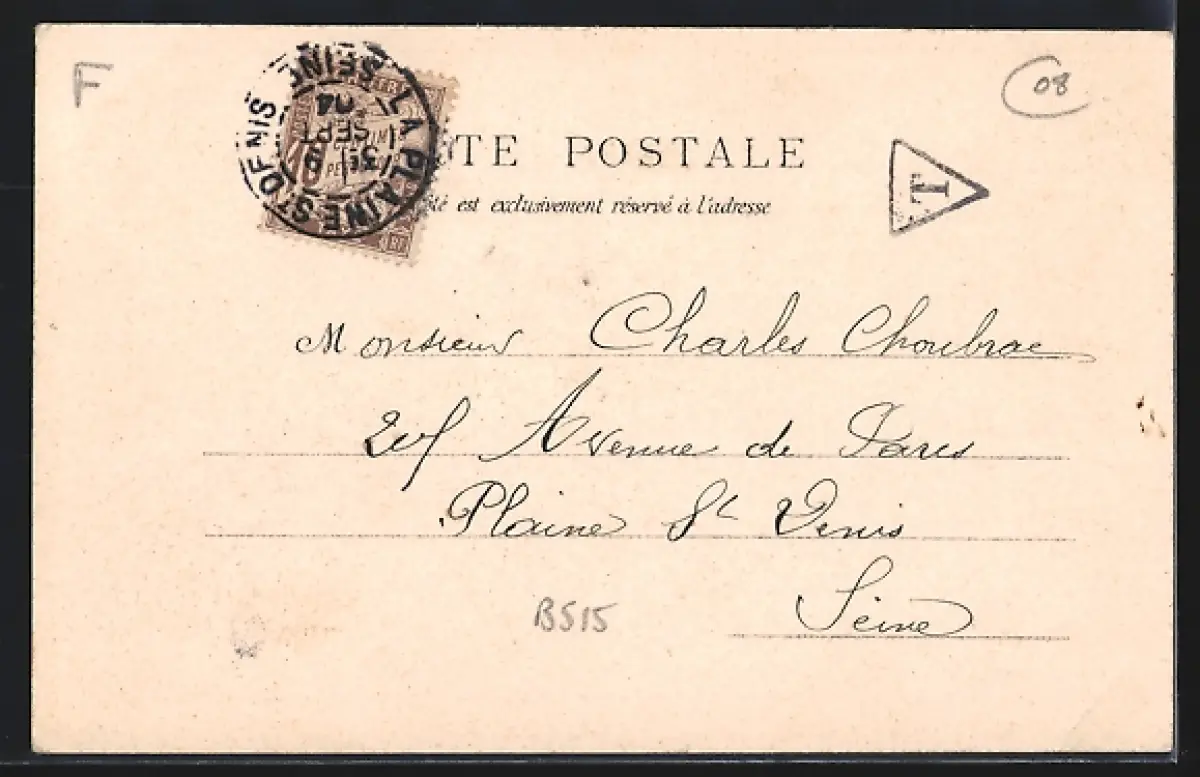 F
08
LA PLAINE ST DENIS SEINE
3E
9
SEPT
04
TE POSTALE
T
té est exclusivement réservé à l'adresse
Monsieur Charles Choubrac
Avenue de Paris
Plaine St Denis
Seine
BS15